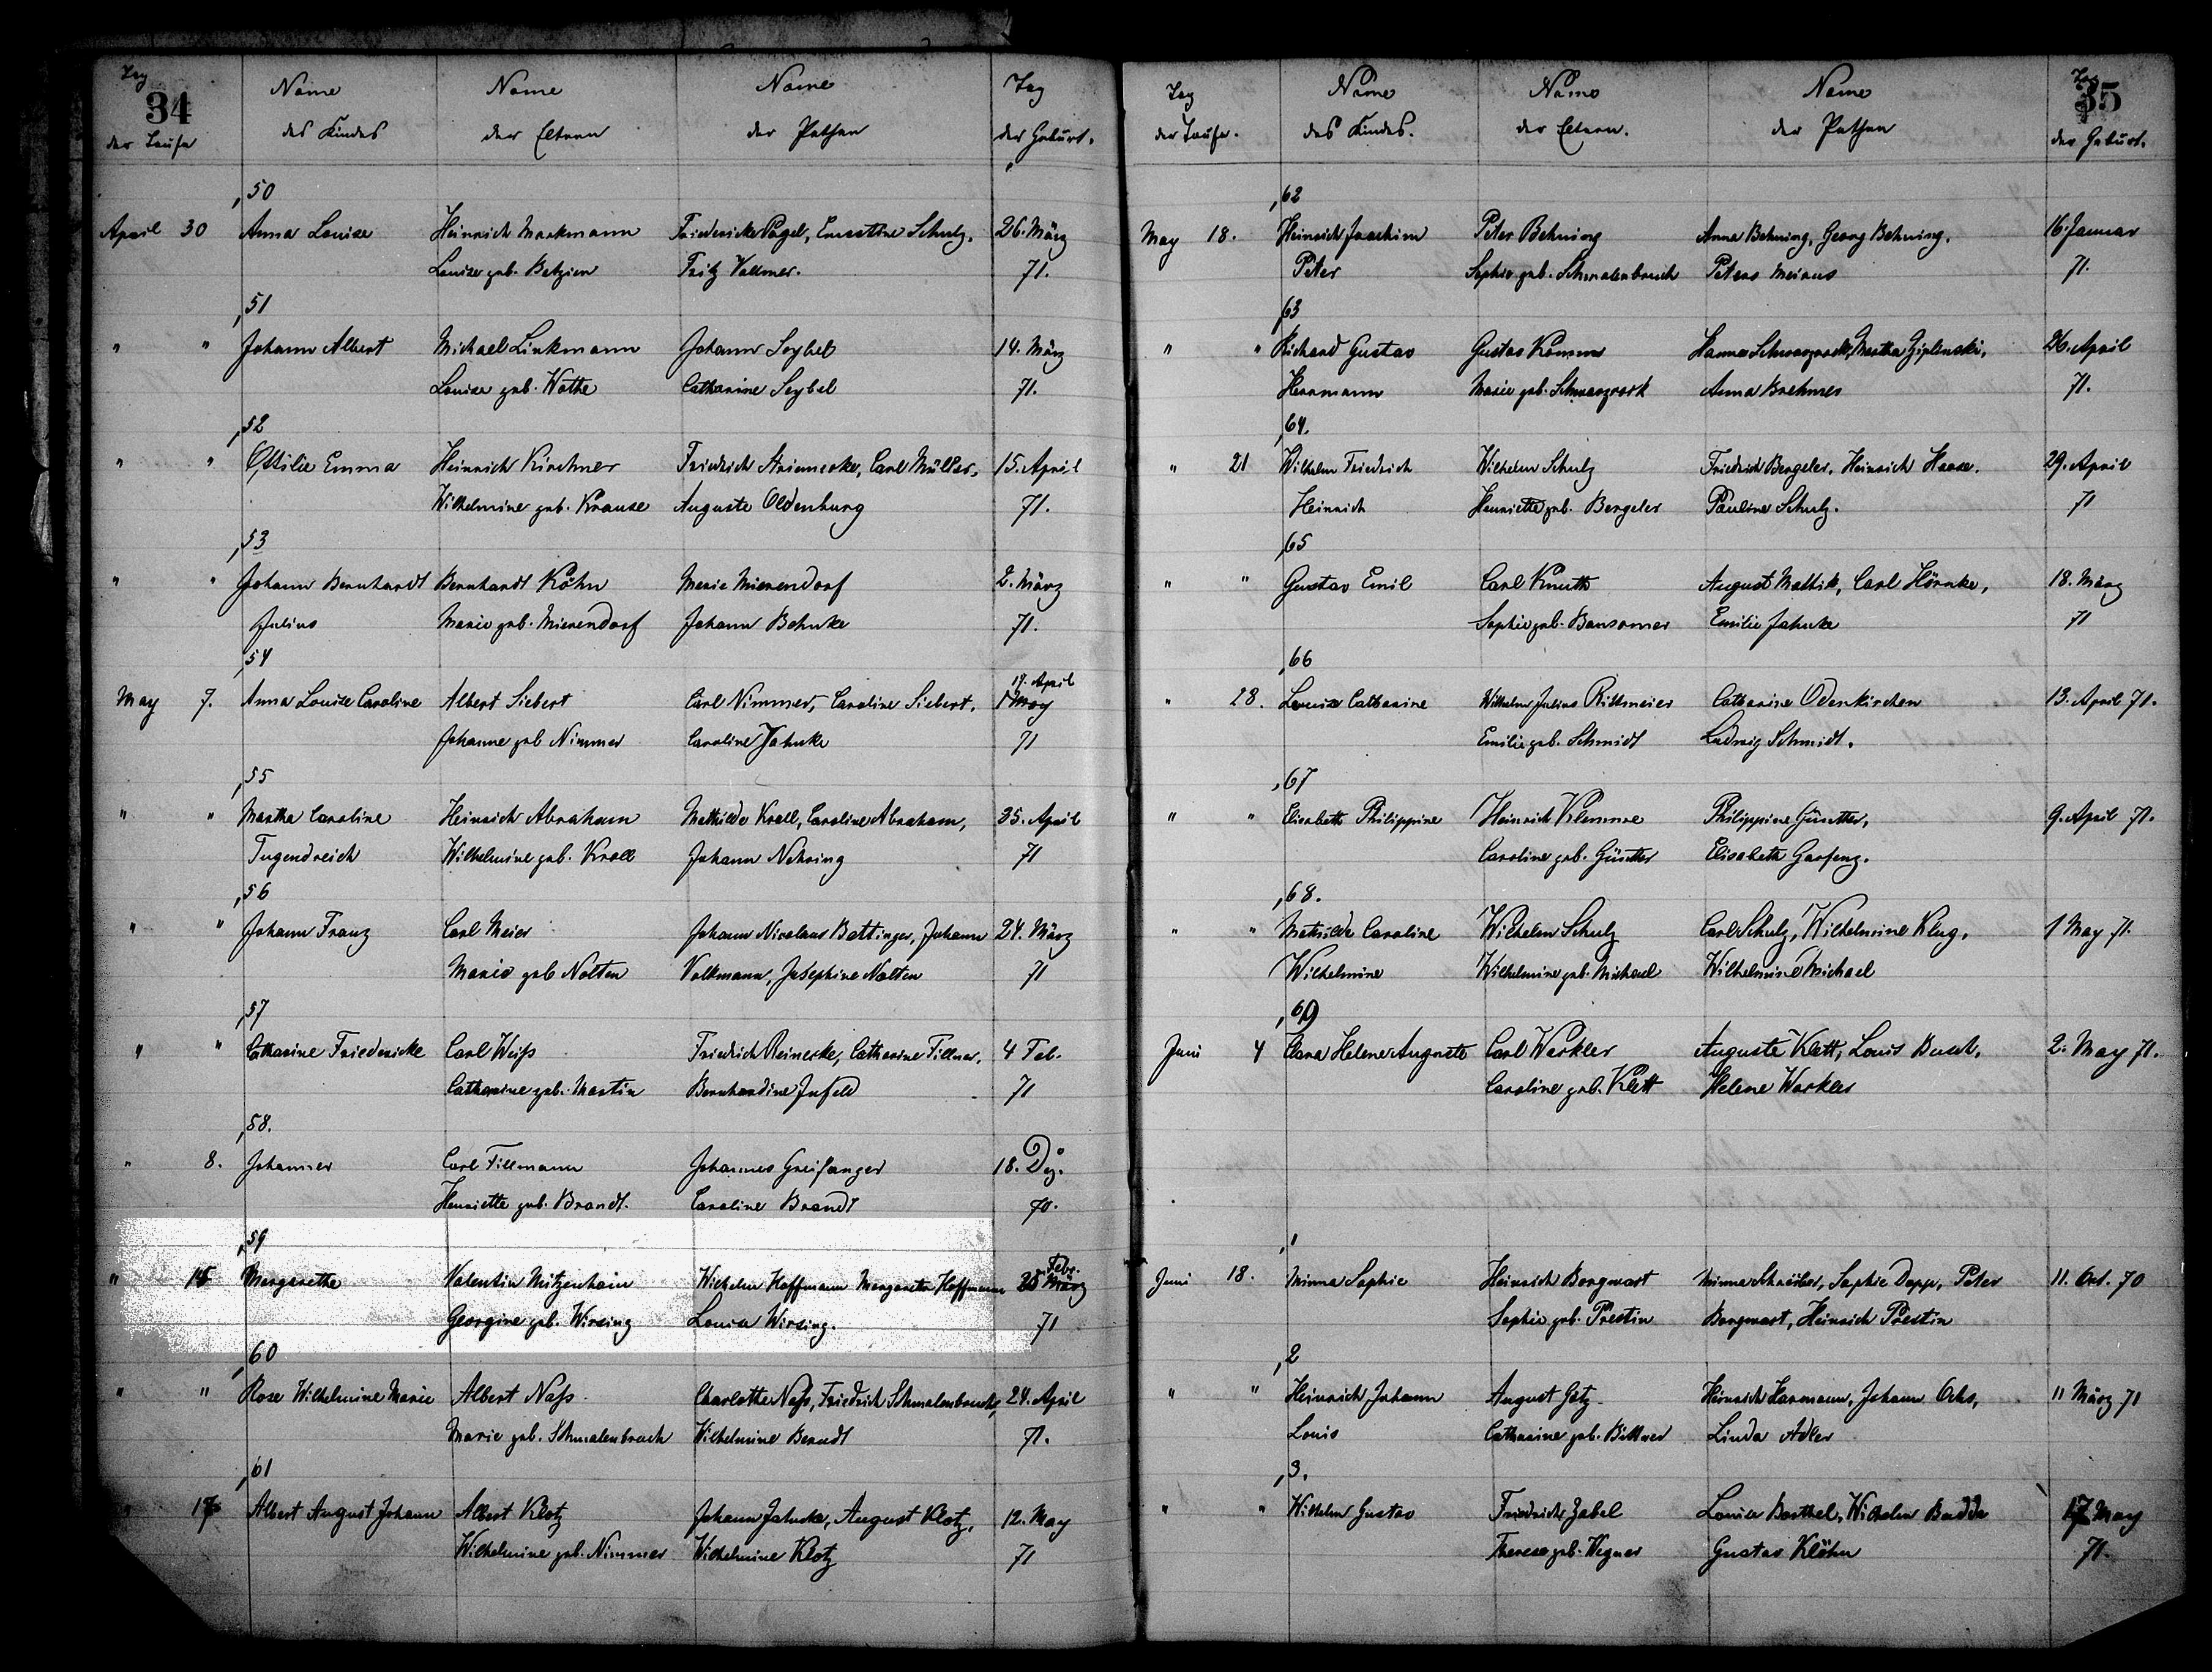 34
Tag
der Taufe
Name
des Kindes
Name
der Eltern
Name
der Pathen
Tag
der Geburt.
50
April 30 Anna Louise Heinrich Markmann Friedericke Pagel, Ernestine Schulz, 26. März
Louise geb. Betzien Fritz Vollmer. 71.
51
" " Johann Albert Michael Linkmann Johann Seybel 14. März
Louise geb. Wothe Catharine Seybel 71.
52
" " Ottilie Emma Heinrich Kirchner Friedrich Carl Müller, 15. April
Wilhelmine geb. Krause Auguste Oldenburg 71.
53
" " Johann Bernhardt Bernhardt Köhn Marie Mierendorf 2. März
Julius Marie geb. Mierendorf Johann Behnke 71.
54
19. April
May 7. Anna Louise Caroline Albert Siebert Carl Nimmer, Caroline Siebert, 1 May
Johanne geb Nimmer Caroline Jahnke 71
55
" " Martha Caroline Heinrich Abraham Mathilde Kroll, Caroline Abraham, 25. April
Tugendreich Wilhelmine geb. Kroll Johann Nehring 71
56
" " Johann Franz Carl Meier Johann Nicolaus Bettinger, Johann 24. März
Marie geb Nolten Volkmann, Josephine Nolten 71
57
" " Catharine Friedericke Carl Weiß Friedrich Reinecke, Catharine Tillner, 4 Feb.
Catharine geb. Martin Bernhardine Infeld 71
58.
" 8. Johannes Carl Tillmann Johannes Greifanger 18. Dez.
Henriette geb. Brandt. Caroline Brandt 70.
59
Febr.
" 15 Margarethe Valentin Mitzenhein Wilhelm Hoffmann Margaretha Hoffmann 25 März
Georgine geb. Wirsing Louisa Wirsing. 71
60
" " Rose Wilhelmine Marie Albert Naß Charlotte Naß, Friedrich Schmalenbruch, 24. April
Marie geb. Schmalenbruch Wilhelmine Berndt 71.
61
" 17 Albert August Johann Albert Klotz Johann Jahncke, August Klotz, 12. May
Wilhelmine geb. Nimmer Wilhelmine Klotz 71
35
Tag
der Taufe.
Name
des Kindes.
Name
der Eltern.
Name
der Pathen
Tag
der Geburt.
62
May 18. Heinrich Joachim Peter Behning Anna Behning, Georg Behning, 16. Januar
Peter Sophie geb. Schmalenbruch Peters Meinus 71.
63
" " Richard Gustav Gustav Hanna Schwarzrock, Martha 26. April
Herrmann Marie geb. Schwarzrock Anna Brehmer 71.
64.
" 21 Wilhelm Friedrich Wilhelm Schulz Friedrich Bergeler, Heinrich Haase. 29. April
Heinrich Henriette geb. Bergeler Pauline Schulz. 71
65
" " Gustav Emil Carl Knuth August Mattik, Carl Hörnke, 18. März
Sophie geb. Bansamer Emilie Jahnke 71
66
" 28. Louise Catharine Wilhelm Julius Rittmeier Catharine Odenkirchen 13. April 71.
Emilie geb. Schmidt Ludwig Schmidt.
67
" " Elisabeth Philippine Heinrich Klemme Philippine Günther, 9. April 71.
Caroline geb. Günther Elisabeth
68.
" " Mathilde Caroline Wilhelm Schulz Carl Schulz, Wilhelmine Klug, 1 May 71.
Wilhelmine Wilhelmine geb. Michael Wilhelmine Michael
69
Juni 4 Clara Helene Auguste Carl Warkler Auguste Klett, Louis Busch, 2. May 71.
Caroline geb. Klett Helene Warkler
1
Juni 18. Minna Sophie Heinrich Borgwart Minna Schreiber, Sophie Depp, Peter 11. Oct. 70
Sophie geb. Prestin Borgwart, Heinrich Prestin
2
" " Heinrich Johann August Götz Heinrich Harmann, Johann Ochs, 11 März 71
Louis Catharine geb. Bittner Linda Adler
3.
" " Wilhelm Gustav Friedrich Zabel Louise Barthel, Wilhelm Budde 17 May
Therese geb. Wegner Gustav Klöhn 71.